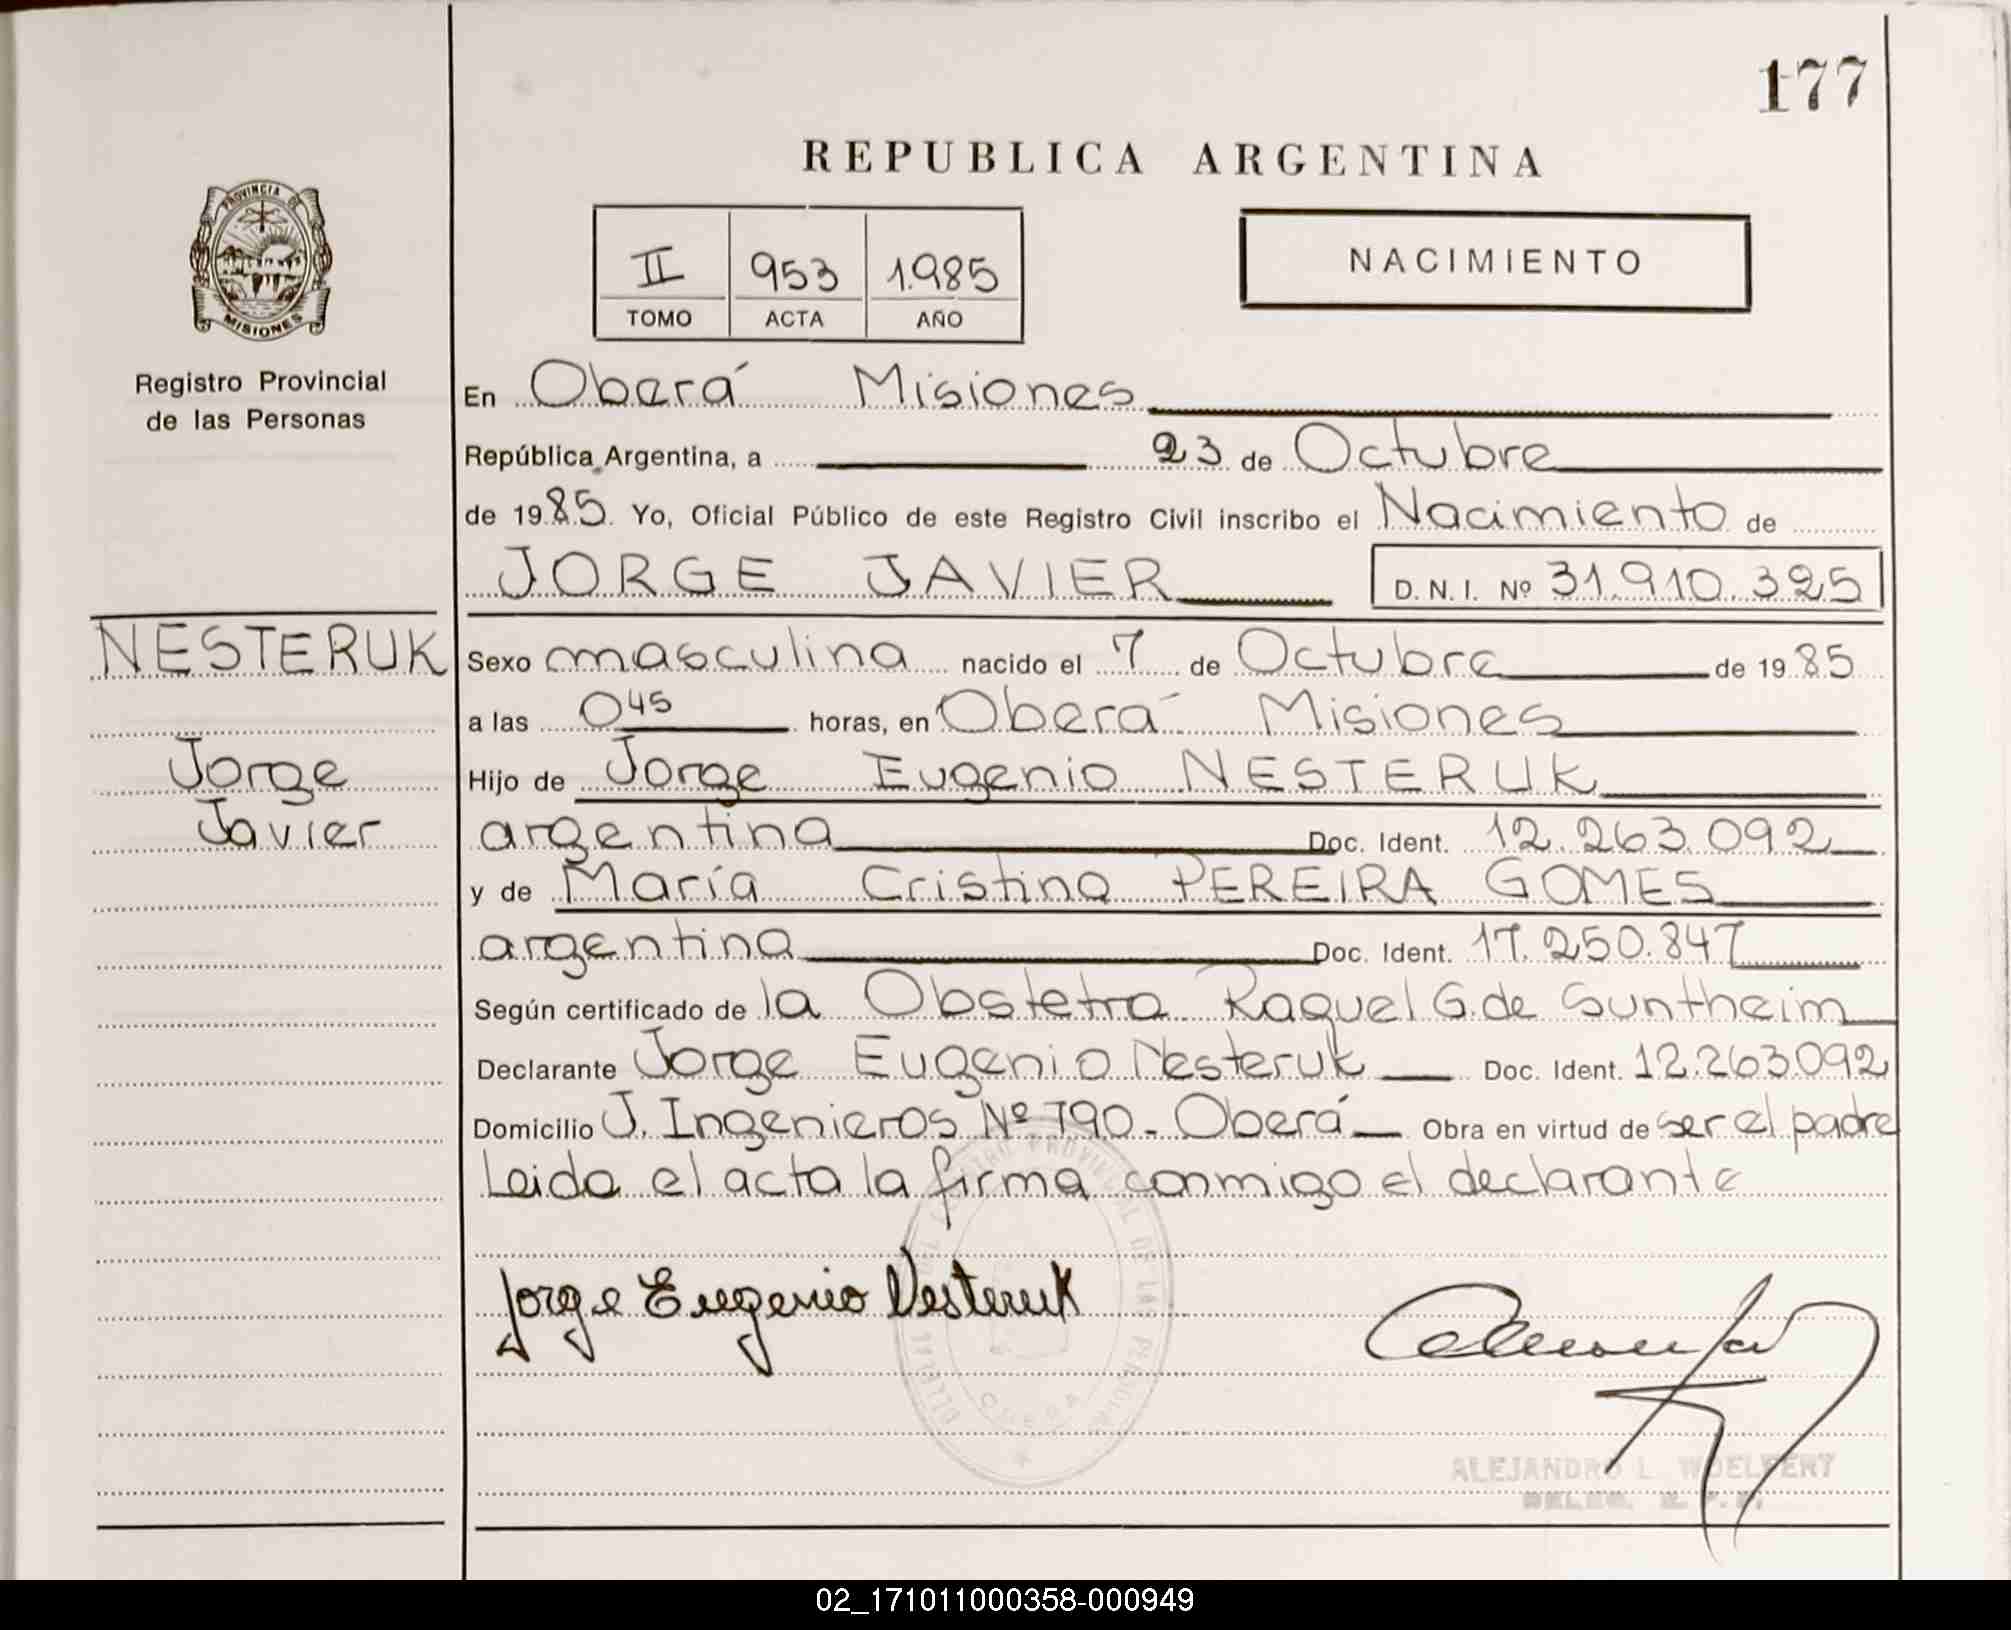 177
REPUBLICA ARGENTINA
PROVINCIA DE
MISIONES
Registro Provincial
de las Personas
II 953 1.985
TOMO ACTA AÑO
NACIMIENTO
En Oberá Misiones
República Argentina, a 23 de Octubre
de 1985. Yo, Oficial Público de este Registro Civil inscribo el Nacimiento de
JORGE JAVIER D.N.I. Nº 31.910.325
NESTERUK
Jorge
Javier
Sexo masculina nacido el 7 de Octubre de 1985
a las 0 45 horas, en Oberá Misiones
Hijo de Jorge Eugenio NESTERUK
argentina Doc. Ident. 12.263.092
y de María Cristina PEREIRA GOMES
argentina Doc. Ident. 17.250.847
Según certificado de la Obstetra Raquel G. de Suntheim
Declarante Jorge Eugenio Nesteruk Doc. Ident. 12.263.092
Domicilio J. Ingenieros Nº 790 - Oberá Obra en virtud de ser el padre
Leida el acta la firma conmigo el declarante
Jorge Eugenio Nesteruk
ALEJANDRO L. WOELFERT
02_171011000358-000949